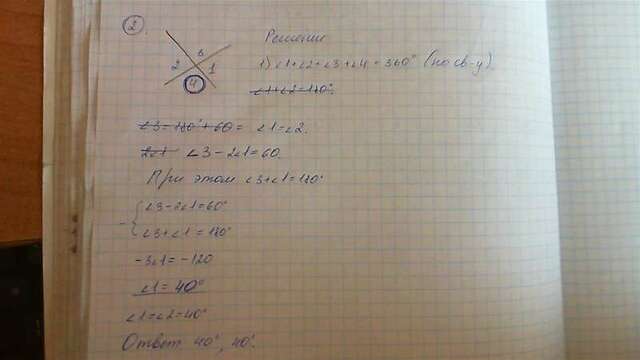 2.
Решение
3
2 1
4
1) ∠1+∠2+∠3+∠4 = 360° (по св-у)
∠1+∠2=180°.
∠3=180°+60= ∠1=∠2.
2∠1 ∠3-2∠1=60.
При этом ∠3+∠1=180°
∠3-2∠1=60°
∠3+∠1=180°
-3∠1=-120
∠1=40°
∠1=∠2=40°
Ответ 40°, 40°.